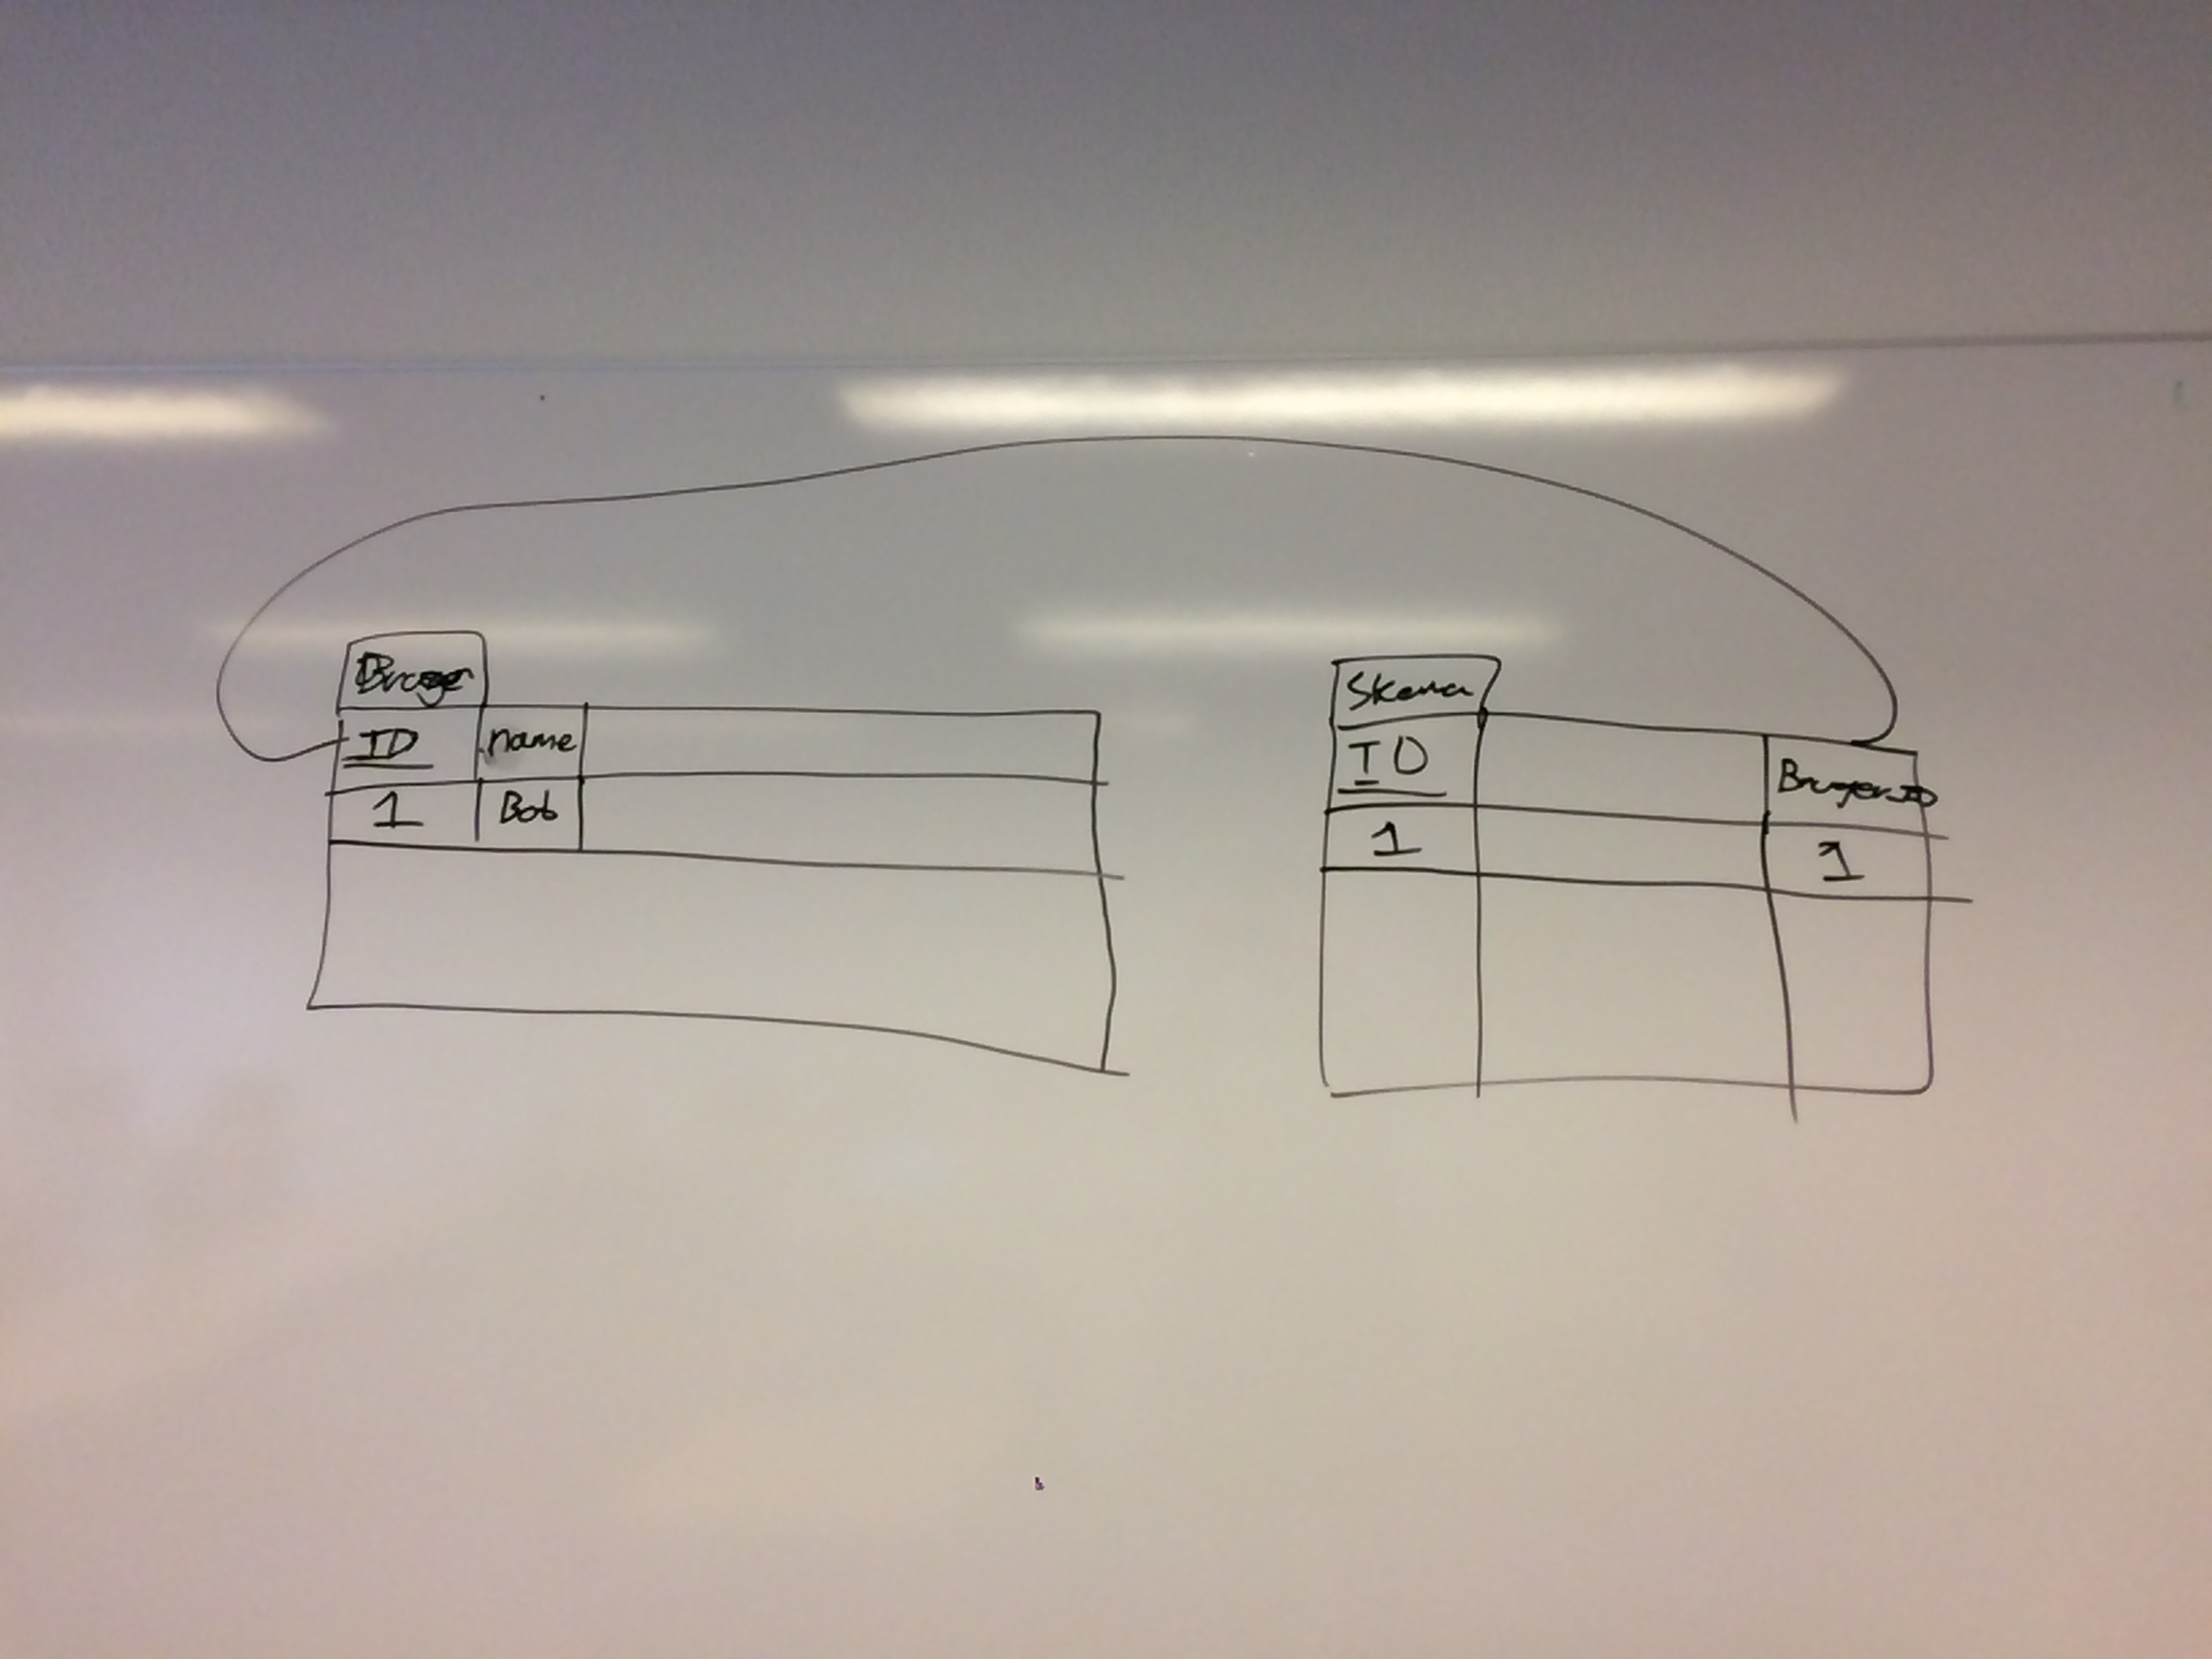 Bruger
ID name
1 Bob
Skema
ID BrugerID
1 1